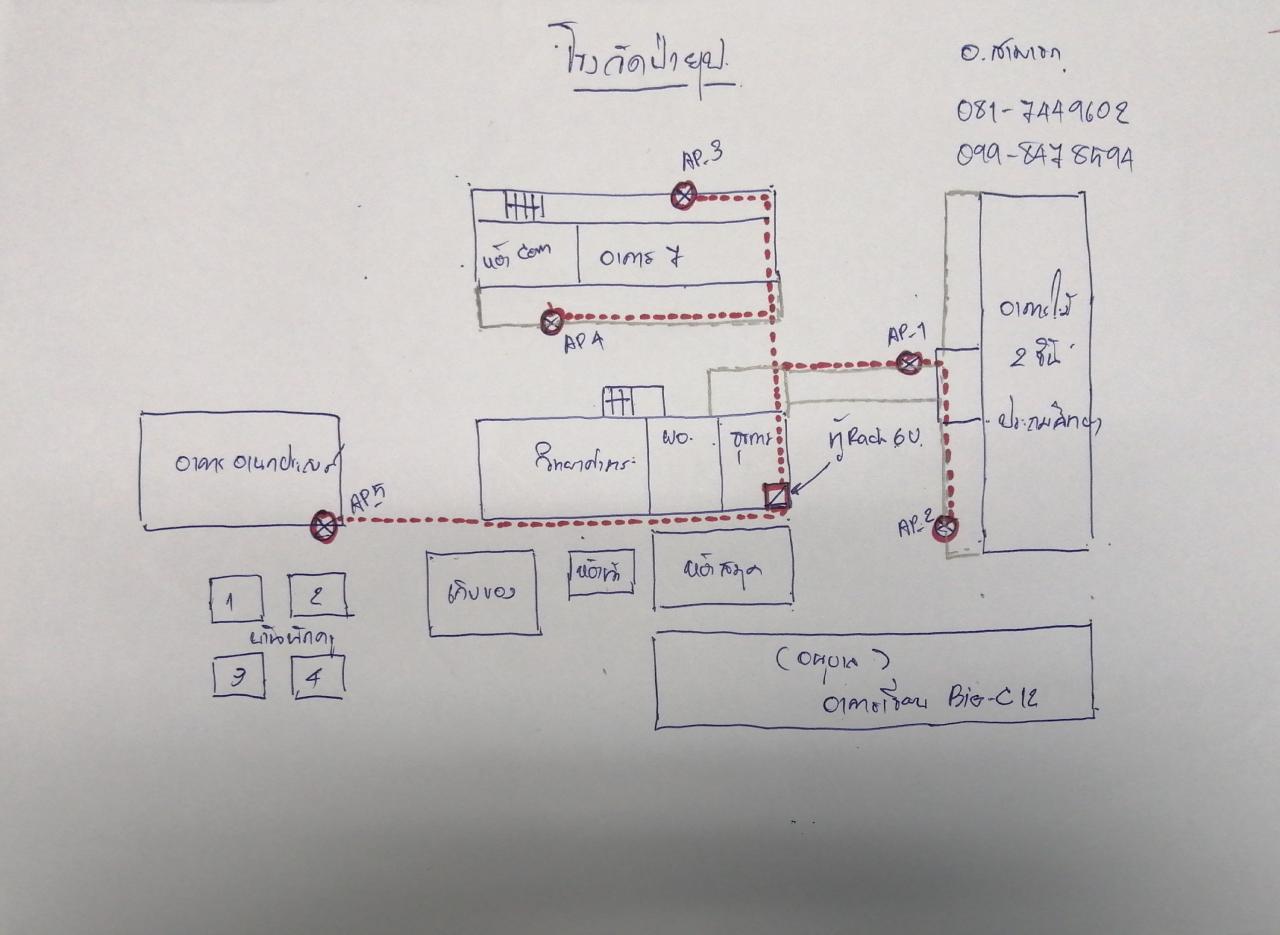 โรงวัดป่ายุบ.
081-7449602
099-8478594
AP-3
ห้อง Com
อาคาร 7
AP4
AP-1
อาคารไม้
2 ชั้น
ประถมศึกษา
ผอ.
ธุรการ
ตู้ Rack 6U.
อาคาร อเนกประสงค์
AP5
AP-2
เก็บของ
ห้องน้ำ
ห้องสมุด
1
2
บ้านพักครู
3
4
(อนุบาล)
อาคารเรียน